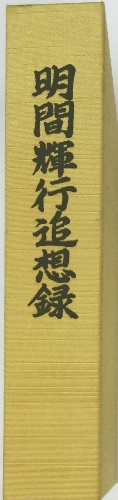 明間輝行追想録